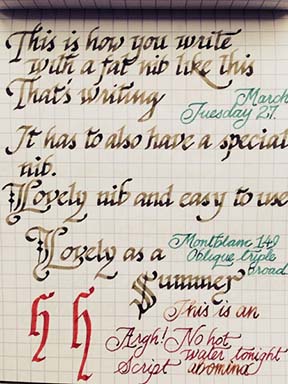 This is how you write
with a fat nib like this
That's writing
March
Tuesday 27.
It has to also have a special
nib.
Lovely nib and easy to use
Lovely as a
Montblanc 149
Oblique triple
broad
Summer
h h
This is an
Argh! No hot
water tonight
Script abomina